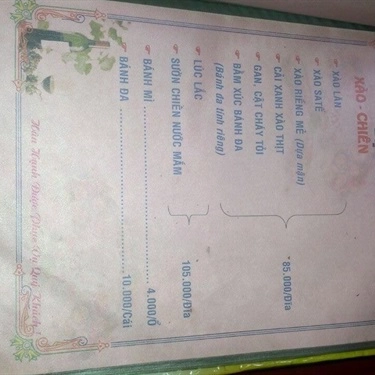 XÀO - CHIÊN
XÀO LĂN
XÀO SATẾ
XÀO RIỀNG MẺ (Dựa mận)
CẢI XANH XÀO THỊT
GAN, CẬT CHÁY TỎI
BẰM XÚC BÁNH ĐA
(Bánh đa tính riêng)
85.000/Dĩa
LÚC LẮC
SƯỜN CHIÊN NƯỚC MẮM
105.000/Dĩa
BÁNH MÌ ........ 4.000/Ổ
BÁNH ĐA ........ 10.000/Cái
Hân Hạnh Được Phục Vụ Quý Khách